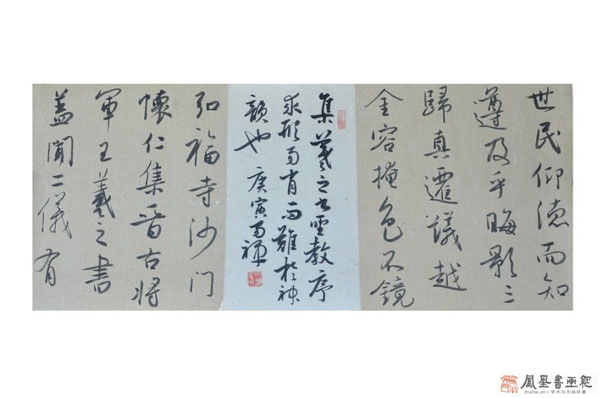 世民仰德而知
遵及乎晦影三
歸真遷議越
金容掩色不鏡
集羲之书聖教序
求形易肖而難於神
韻也 庚寅
弘福寺沙门
懷仁集晉古將
軍王羲之書
蓋聞二儀有